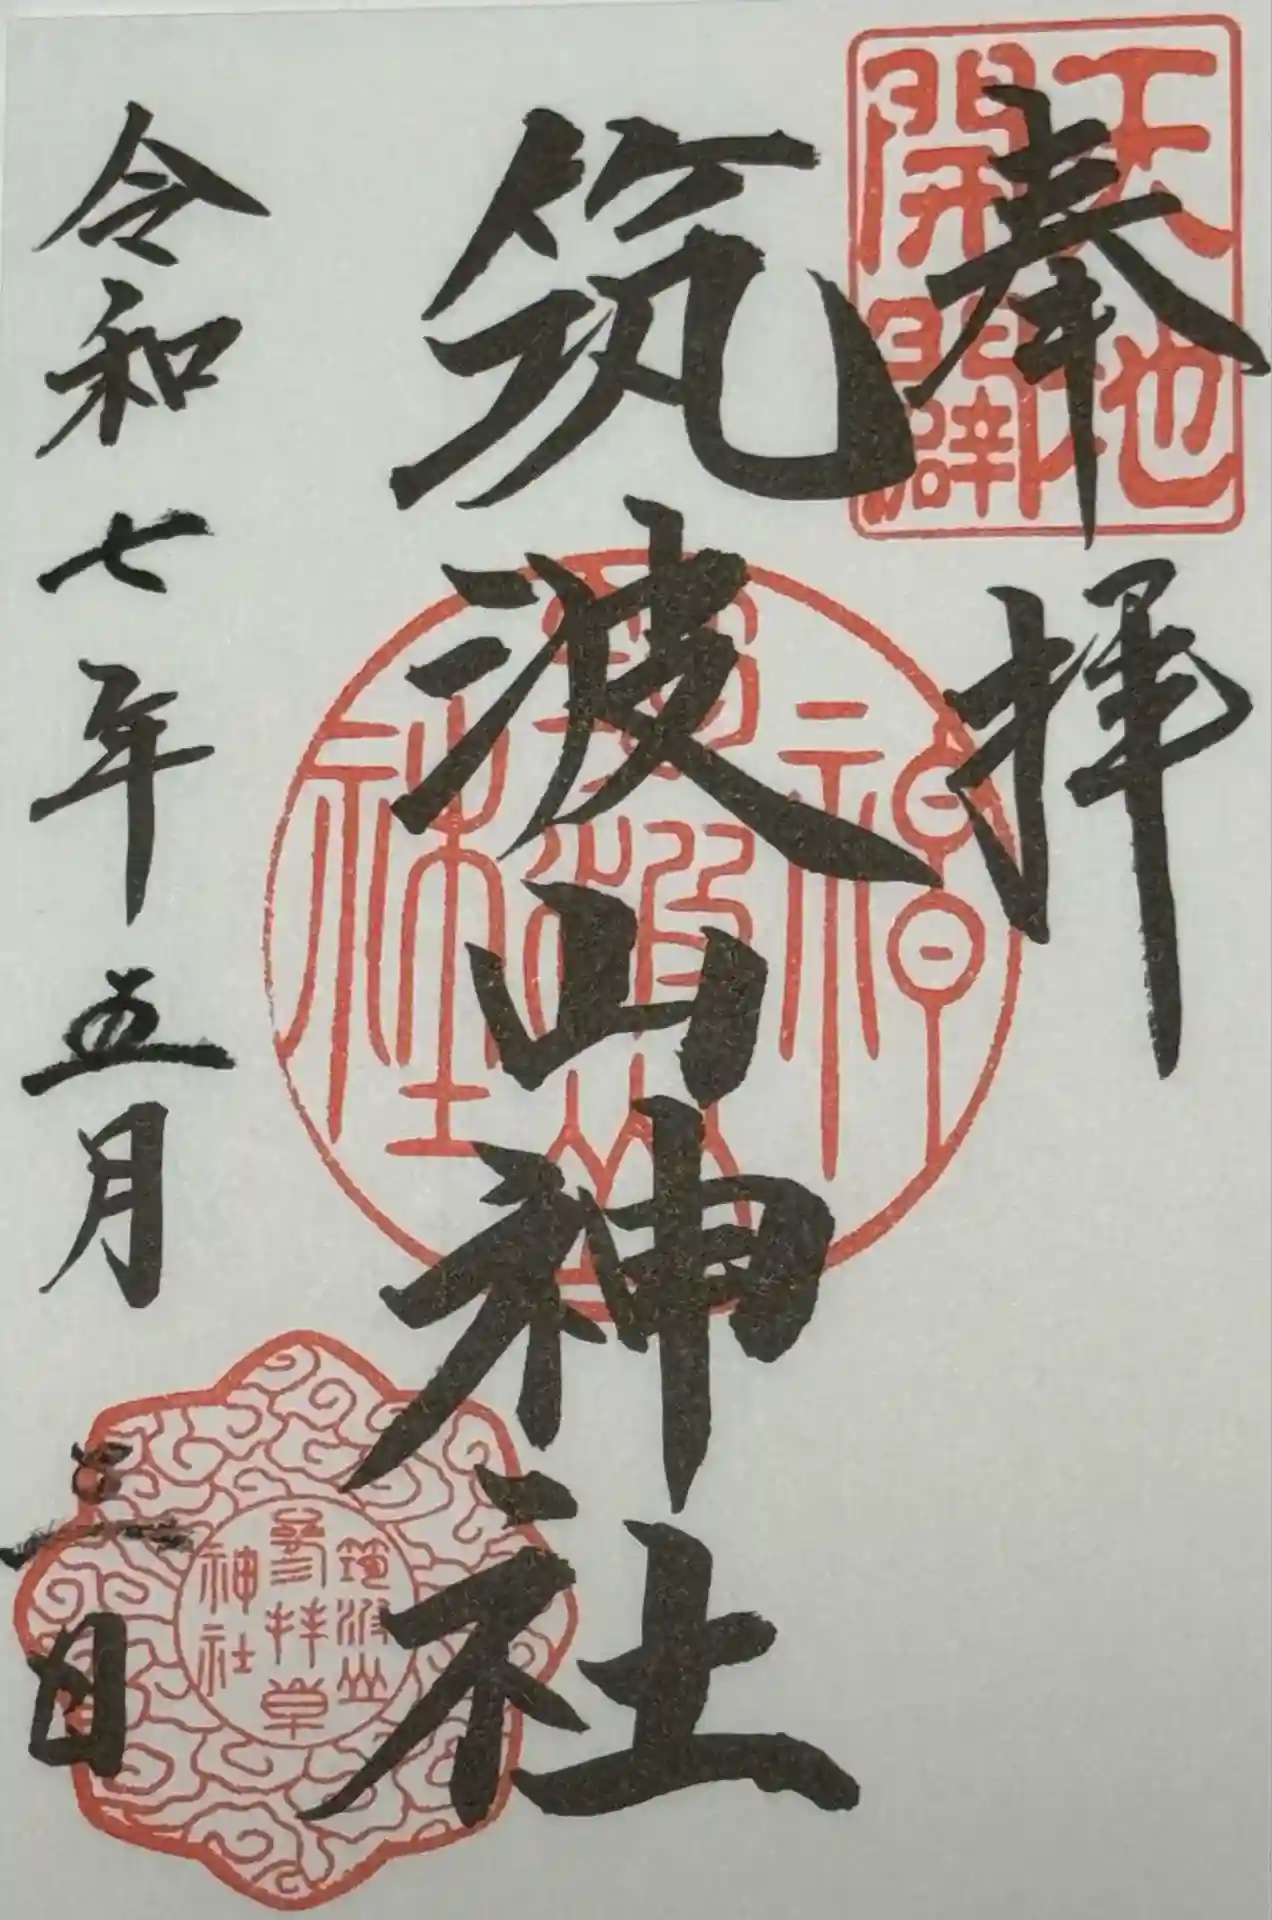 奉拝
天地
開闢
筑波山神社
神
筑波山
社
令和七年五月三日
筑波山
参拝章
神社